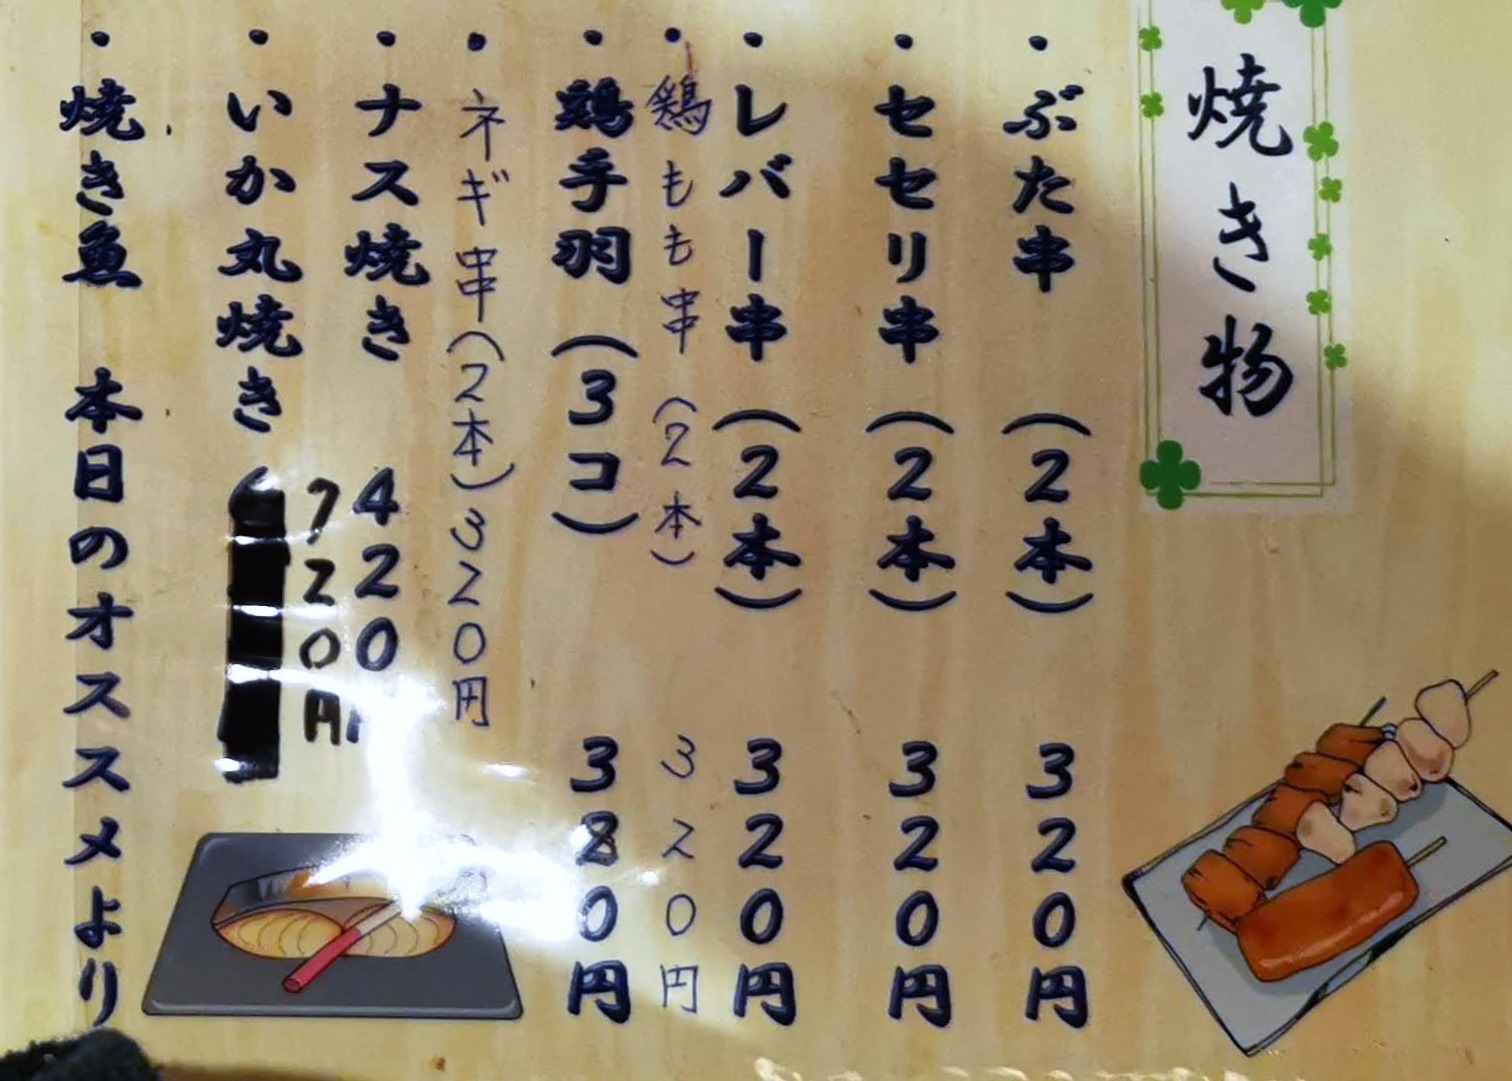 焼き物
・ぶた串 (2本) 320円
・セセリ串 (2本) 320円
・レバー串 (2本) 320円
・鶏もも串 (2本) 320円
・鶏手羽 (3コ) 380円
・ネギ串 (2本) 320円
・ナス焼き 420
・いか丸焼き 720円
・焼き魚 本日のオススメより